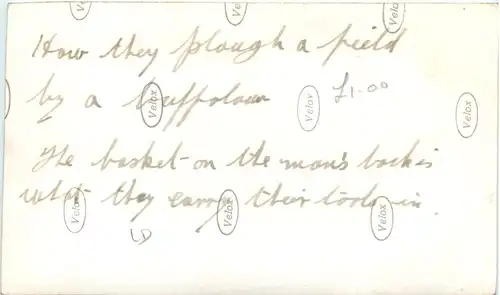 Velox Velox
How they plough a field
by a buffolow Velox Velox £1-00 Velox
The basket on the man's back is
what they carry their tools in.
Velox Velox Velox
LD